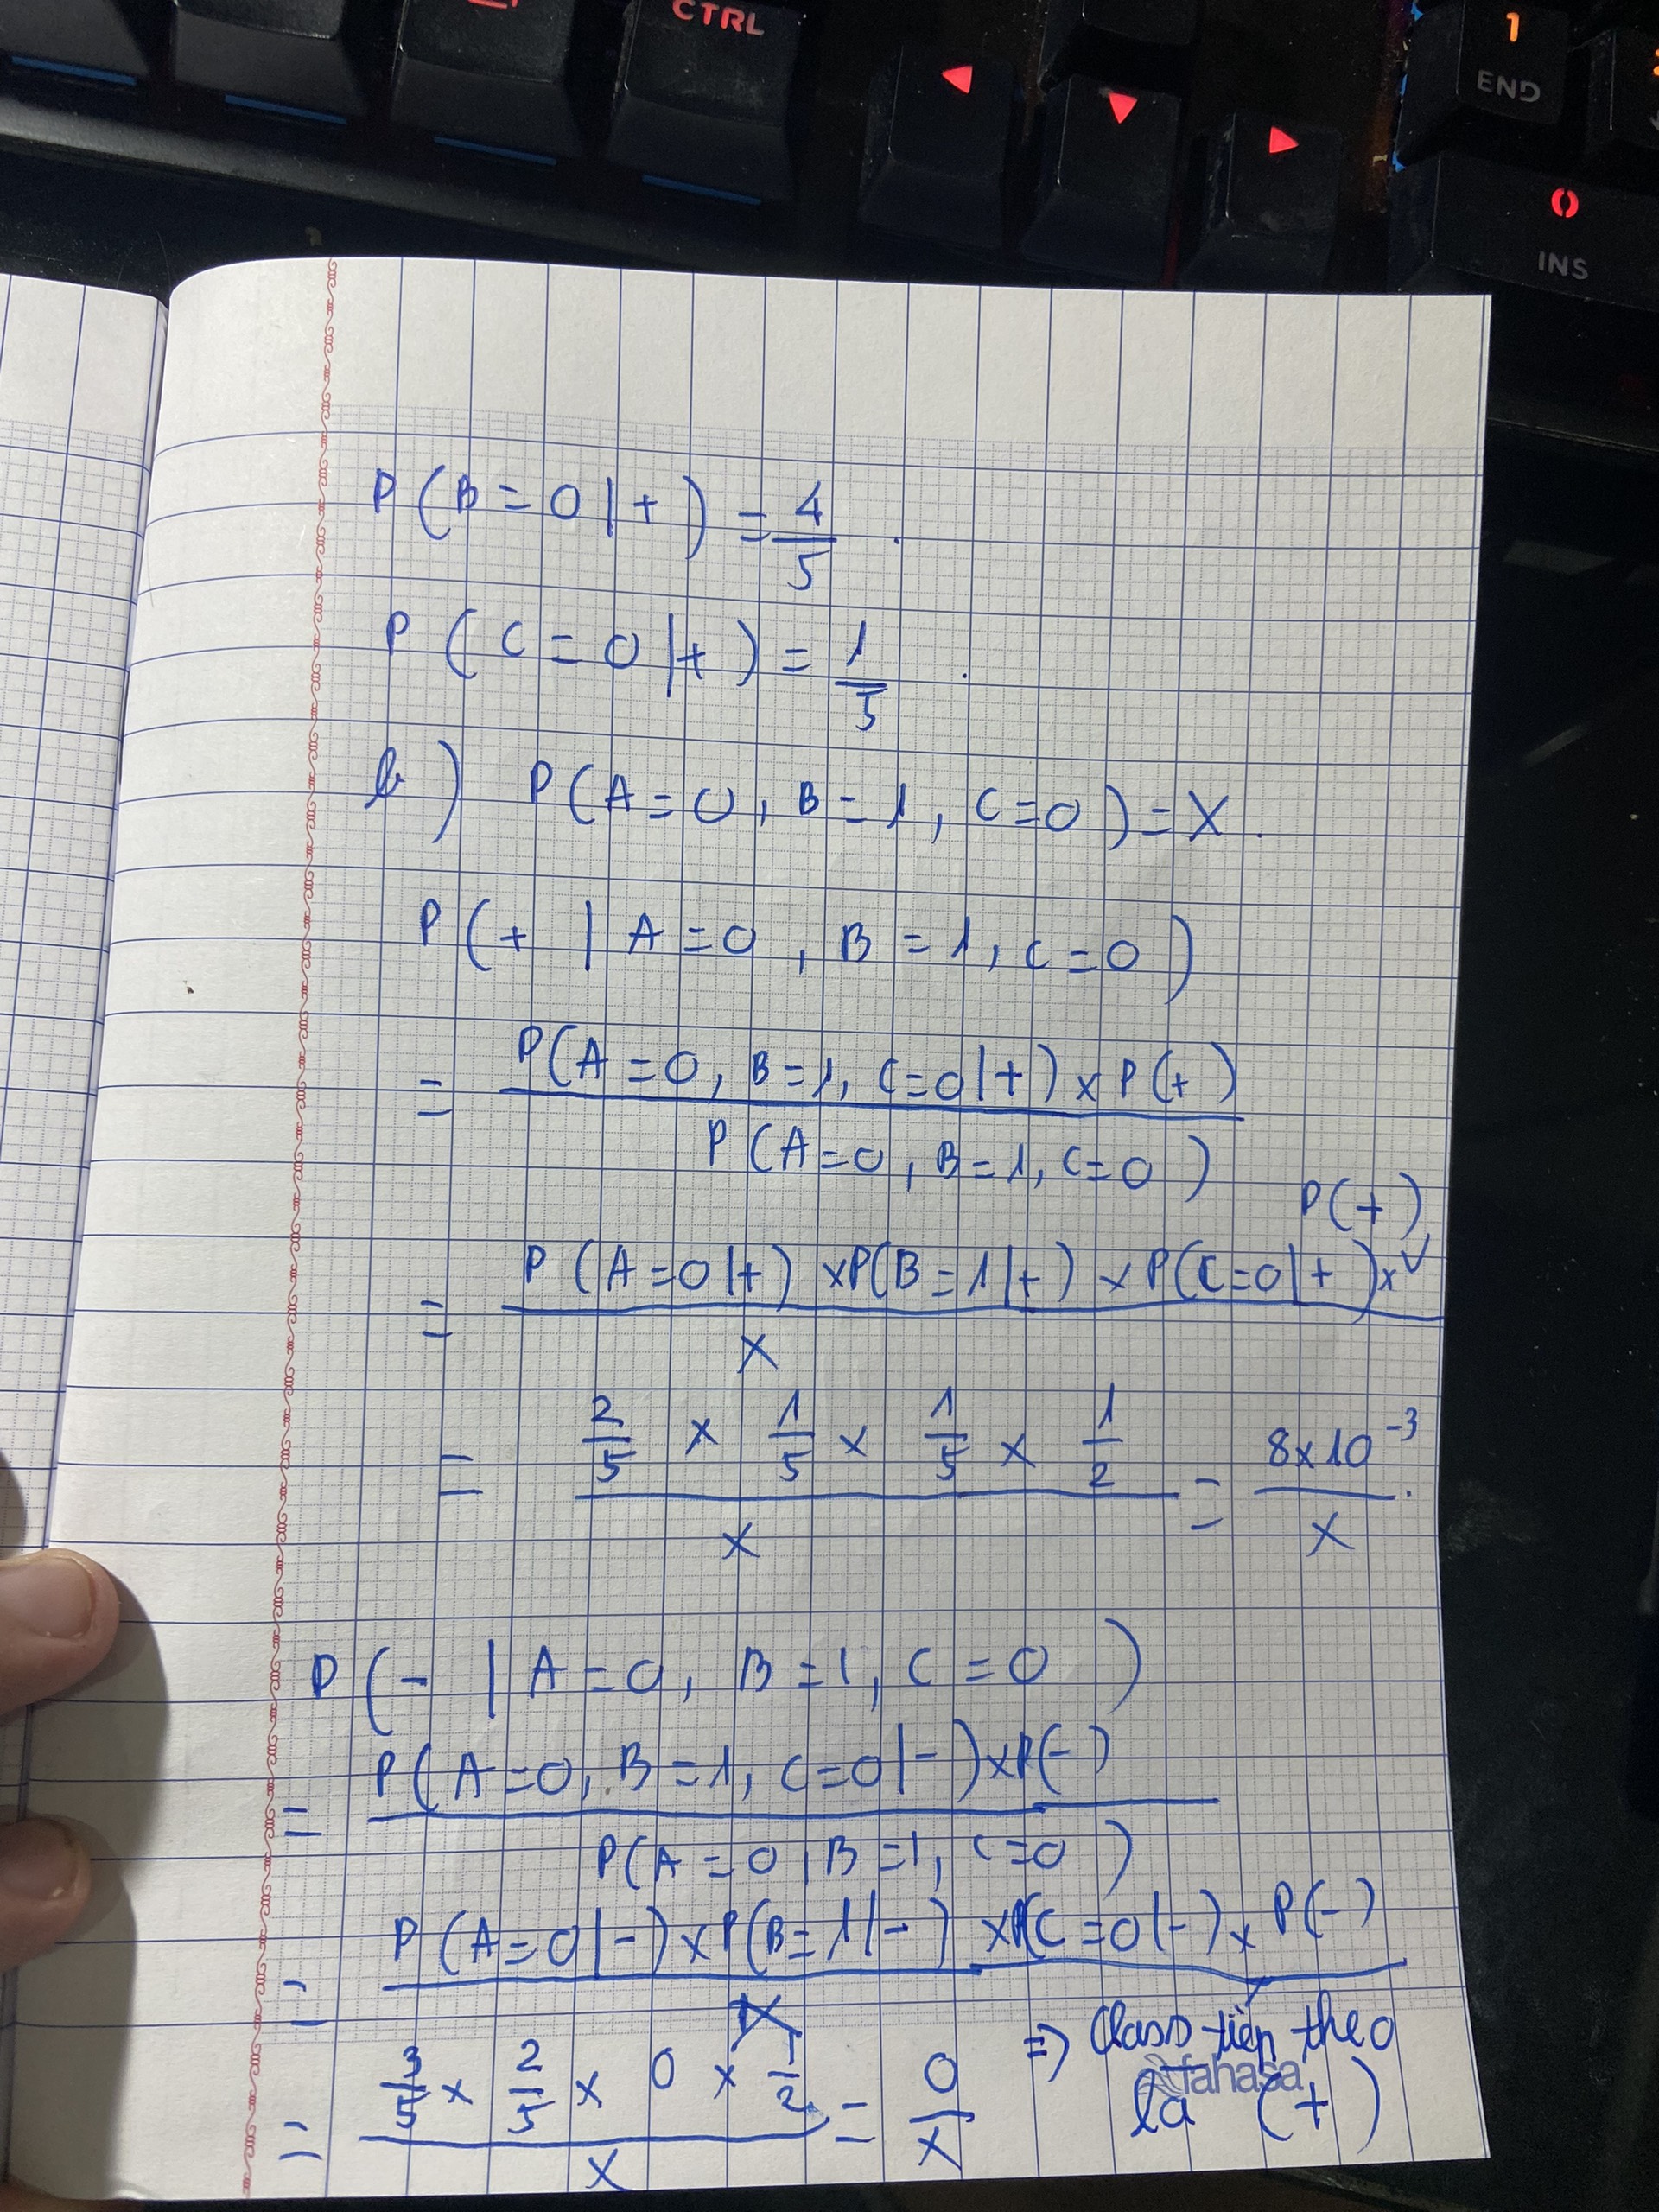 CTRL
1
END
0
INS
P(B=0|+) = 4/5.
P(C=0|+) = 1/5.
b) P(A=0, B=1, C=0) = X.
P(+ | A=0, B=1, C=0)
= P(A=0, B=1, C=0|+) x P(+) / P(A=0, B=1, C=0)
= P(A=0|+) x P(B=1|+) x P(C=0|+) x P(+) / X
= 2/5 x 1/5 x 1/5 x 1/2 / X = 8x10^-3 / X.
P(- | A=0, B=1, C=0)
= P(A=0, B=1, C=0|-) x P(-) / P(A=0, B=1, C=0)
= P(A=0|-) x P(B=1|-) x P(C=0|-) x P(-) / X
= 3/5 x 2/5 x 0 x 1/2 / X = 0/X => Class tiếp theo
là (+)
fahasa